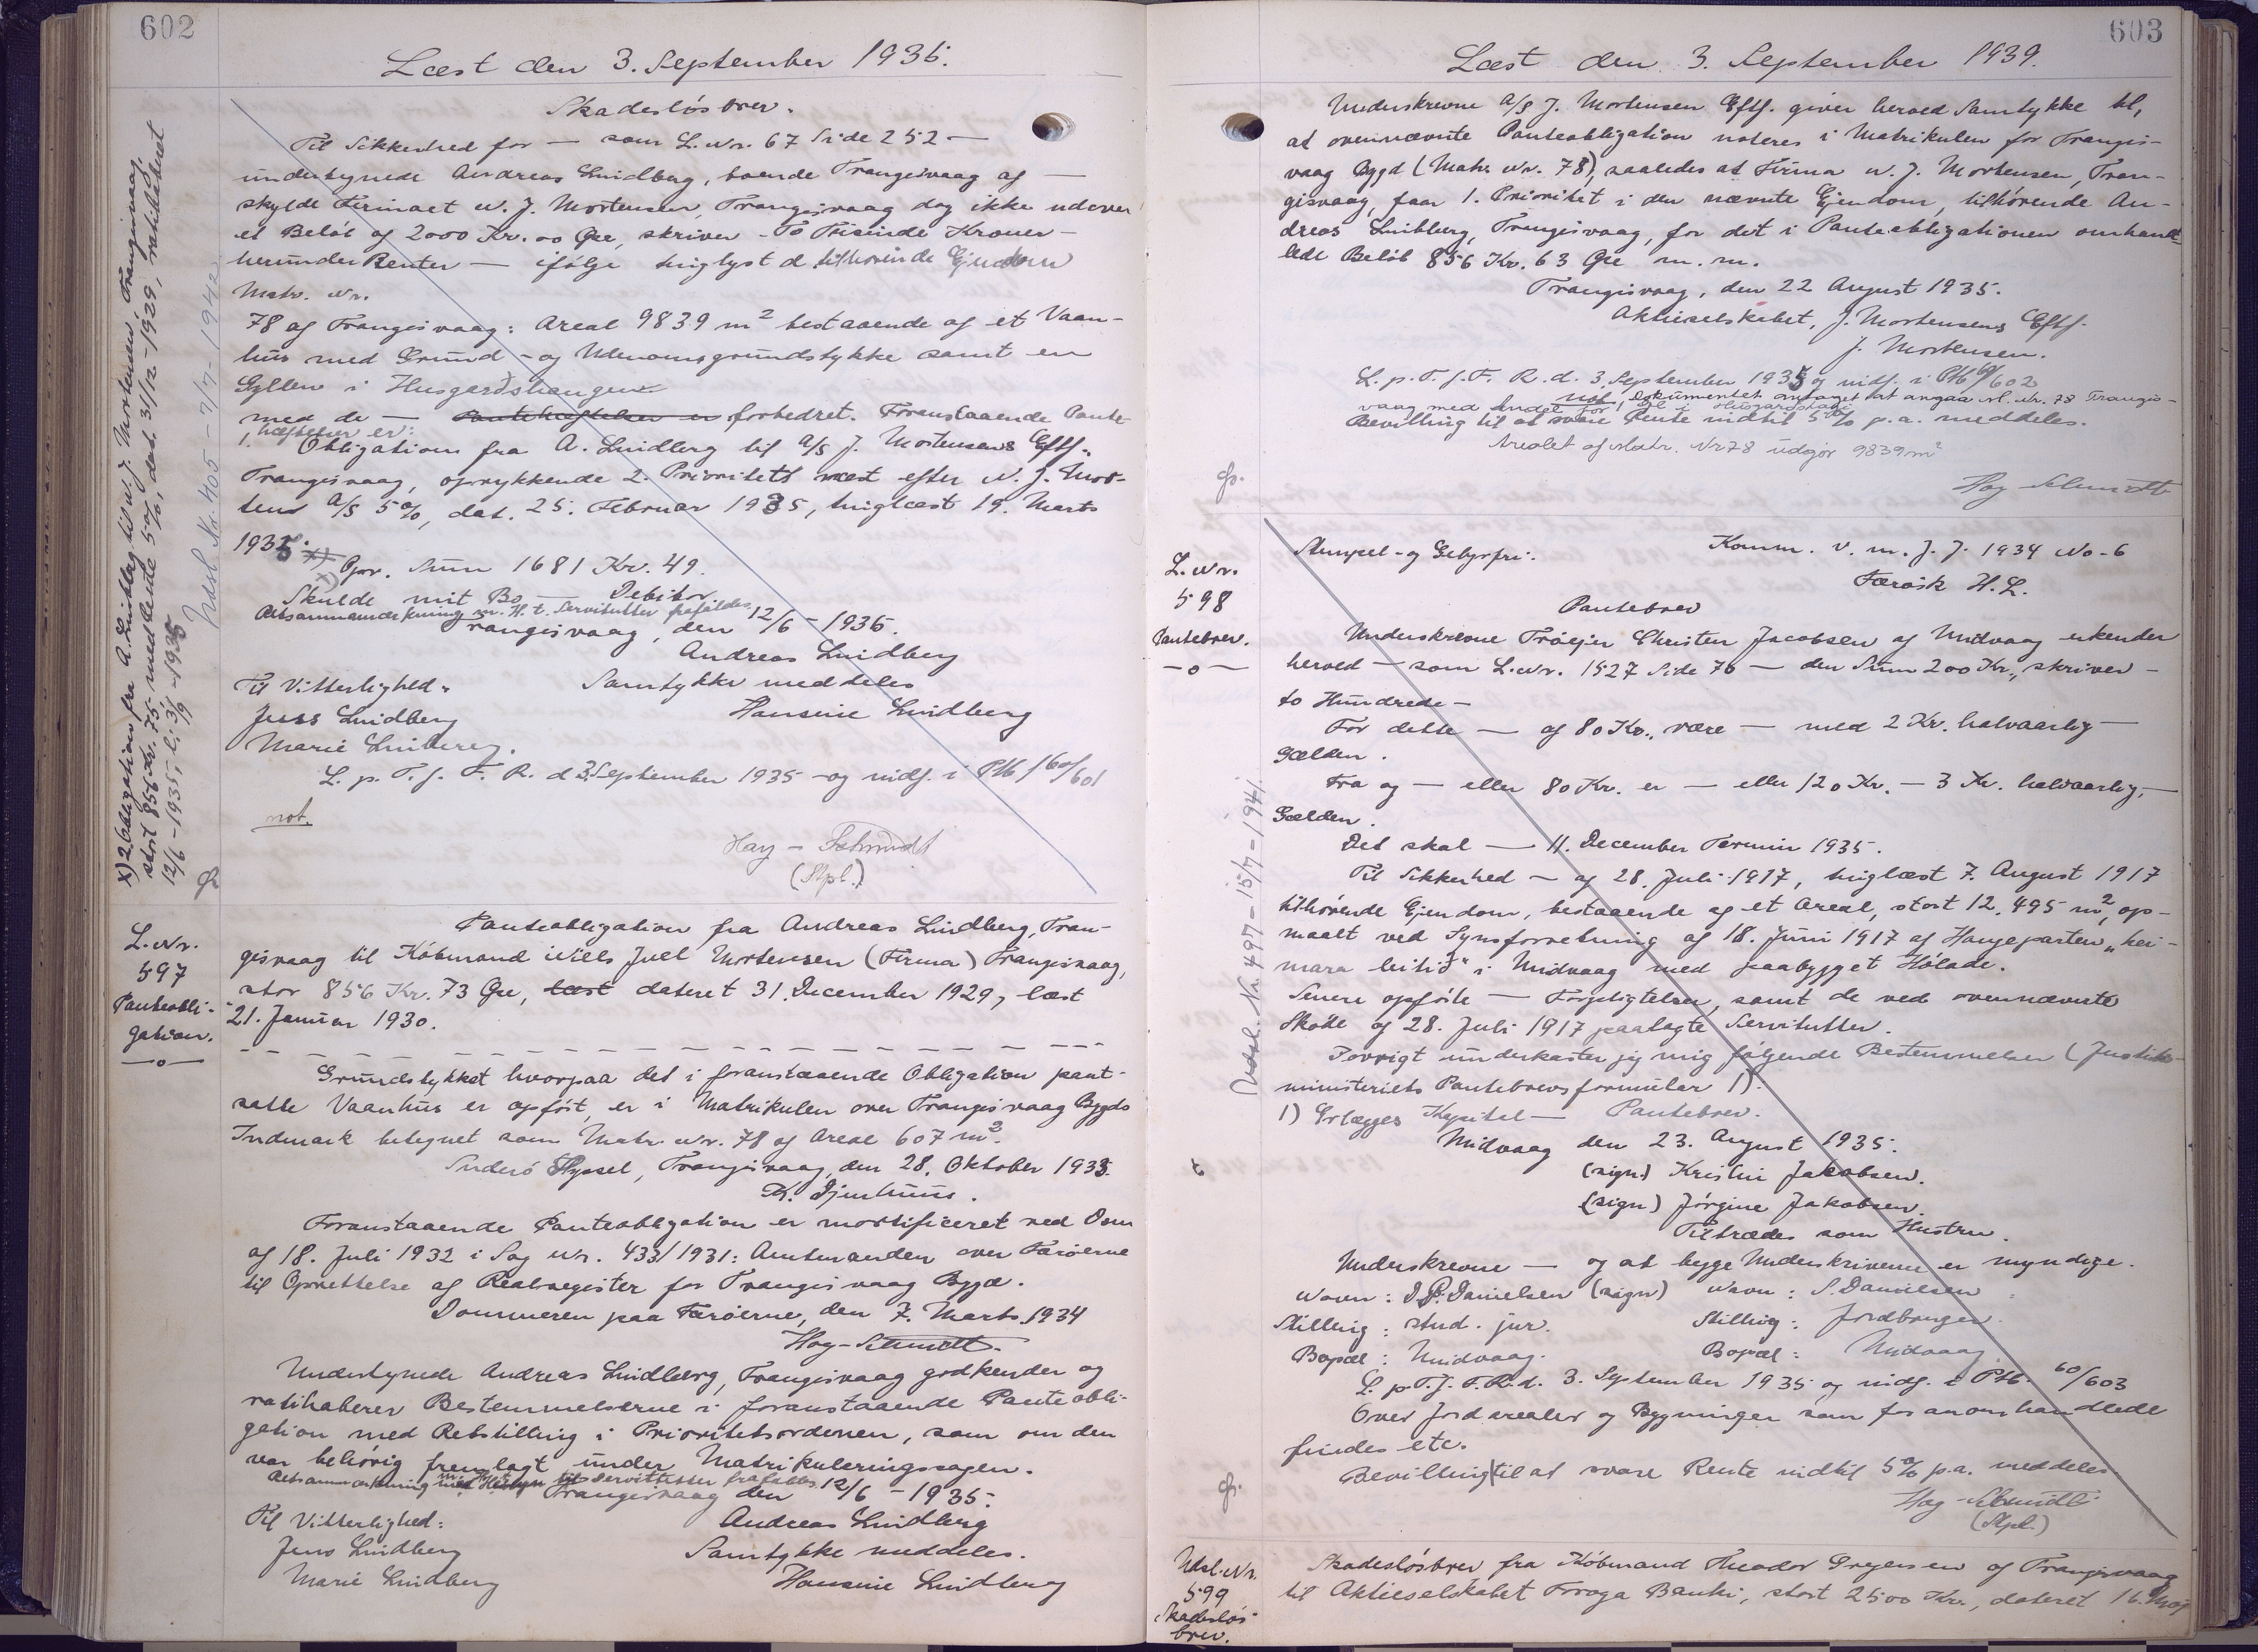 602
Læst den 3. September 1935.
Skadesløsbrev.
Til Sikkerhed for — som L. Nr. 67 Side 252 —
undertegnede Andreas Lindberg, boende Trangisvaag af —
skylde Firmaet N. J. Mortensen, Trangisvaag dog ikke udover
et Beløb af 2000 Kr. 00 Øre, skriver - To Tusinde Kroner -
herunder Renter — ifølge tinglyst d. tilhørende Ejendom
Matr. Nr.
78 af Trangisvaag: Areal 9839 m² bestaaende af et Vaan-
hus med Grund - og Udenomsgrundstykke samt en
Gyllen i Husgarðshangen
med de — Pantehæftelser er forbedret. Foranstaaende Pante-
hæftelser er:
1. Obligation fra A. Lindberg til A/S J. Mortensens Eftf.,
Trangisvaag, oprykkende 2. Prioritets næst efter N. J. Mor-
tens A/S 5%, dat. 25. Februar 1935, tinglæst 19. Marts
1935. x)
x) Opr. Sum 1681 Kr. 49.
Skulde mit Bo — Debitor
Retsanmærkning m. H. t. Servitutter frafaldes
Trangisvaag, den 12/6 - 1935.
Andreas Lindberg
Til Vitterlighed:
Samtykke meddeles
Jens Lindberg
Hansine Lindberg
Marie Lindberg.
L. p. T. f. F. R. d. 3. September 1935 - og indf. i PtB/60/601
not.
Hay - Schmidt
(Stpl.)
x) 2 Obligation fra A. Lindberg til N. J. Mortensen, Trangisvaag,
stort 856 Kr. 73, med Rente 5%, dat. 31/12 - 1929, ratihaberet
12/6 - 1935, l. 3/9 - 1935
Udsl. Nr. 405 - 7/7 - 1942
L. Nr.
597
Panteobli-
gation.
—o—
Panteobligation fra Andreas Lindberg, Tran-
gisvaag til Købmand Niels Juel Mortensen (Firma) Trangisvaag,
stor 856 Kr. 73 Øre, læst dateret 31. December 1929, læst
21. Januar 1930.
Grundstykket hvorpaa det i foranstaaende Obligation pant-
satte Vaanhus er opført, er i Matrikulen over Trangisvaag Bygds
Indmark betegnet som Matr. Nr. 78 af Areal 607 m².
Suderø Syssel, Trangisvaag, den 28. Oktober 1933.
K. Djurhuus.
Foranstaaende Panteobligation er mortificeret ved Dom
af 18. Juli 1932 i Sag Nr. 433/1931: Amtmanden over Færøerne
til Oprettelse af Realregister for Trangisvaag Bygd.
Dommeren paa Færøerne, den 7. Marts 1934
Hay - Schmidt.
Undertegnede Andreas Lindberg, Trangisvaag godkender og
ratihaberer Bestemmelserne i foranstaaende Panteobli-
gation med Retstilling i Prioritetsordenen, som om den
var behørig fremlagt under Matrikuleringssagen.
Retsanmærkning m. H. t. Servitutter frafaldes
Trangisvaag den 12/6 - 1935.
Til Vitterlighed:
Andreas Lindberg
Jens Lindberg
Samtykke meddeles.
Marie Lindberg
Hansine Lindberg
603
Læst den 3. September 1939.
Underskrevne A/S J. Mortensen Eftf. giver herved Samtykke til,
at ovennævnte Panteobligation noteres i Matrikulen for Trangis-
vaag Bygd (Matr. Nr. 78), saaledes at Firma N. J. Mortensen, Tran-
gisvaag, faar 1. Prioritet i den nævnte Ejendom, tilhørende An-
dreas Lindberg, Trangisvaag, for det i Panteobligationen omhand-
lede Beløb 856 Kr. 63 Øre m. m.
Trangisvaag, den 22 August 1935.
Aktieselskabet, J. Mortensens Eftf.
J. Mortensen.
L. p. T. f. F. R. d. 3. September 1935 og indf. i PtB 60/602
not. Dokumentet antaget at angaa M. Nr. 78 Trangis-
vaag med Andel for 1 Gyl. i Husgarðshagi
Bevilling til at svare Rente indtil 5% p. a. meddeles.
Arealet af Matr. Nr 78 udgør 9839 m²
Hay - Schmidt
L. Nr.
598
Pantebrev.
—o—
Stempel- og Gebyrfri.
Komm. v. m. J. J. 1934 No-6
Færøsk H. L.
Pantebrev
Underskrevne Trøejer Christen Jacobsen af Midvaag erkender
herved — som L. Nr. 1527 Side 76 — den Sum 200 Kr., skriver -
to Hundrede -
For dette — af 80 Kr., være — med 2 Kr. halvaarlig -
Gælden.
Fra og — eller 80 Kr. er — eller 120 Kr. — 3 Kr. halvaarlig, —
Gælden.
Det skal — 11. December Termin 1935.
Til Sikkerhed — af 28. Juli 1917, tinglæst 7. August 1917
tilhørende Ejendom, bestaaende af et Areal, stort 12,495 m², op-
maalt ved Synsforretning af 18. Juni 1917 af Haugeparten „hei-
mara leitið“ i Midvaag med paabygget Hølade.
Senere opførte — Forpligtelser, samt de ved ovennævnte
Skøde af 28. Juli 1917 paalagte Servitutter.
Iøvrigt underkaster jeg mig følgende Bestemmelser (Justits-
ministeriets Pantebrevsformular 1).
1) Erlægges Kapital — Pantebrev.
Midvaag den 23. August 1935.
(sign) Kristin Jakobsen.
(sign) Jørgine Jakobsen.
Tiltrædes som Hustru.
Underskrevne — og at begge Underskriverne er myndige.
Navn: D. P. Danielsen (sign)
Navn: S. Danielsen
Stilling: stud. jur.
Stilling: Jordbruger.
Bopæl: Midvaag.
Bopæl: Midvaag
L. p. T. f. F. R. d. 3. September 1935 og indf. i PtB. 60/603
Over Jordarealer og Bygninger som foranomhandlede
findes etc.
Bevilling til at svare Rente indtil 5% p. a. meddeles.
Hay - Schmidt
(Stpl.)
Udsl. Nr. 497 - 15/7 - 1941.
Udsl. Nr.
599
Skadesløs-
brev.
Skadesløsbrev fra Købmand Theodor Gregersen af Trangisvaag
til Aktieselskabet Føroya Banki, stort 2500 Kr., dateret 16. Maj